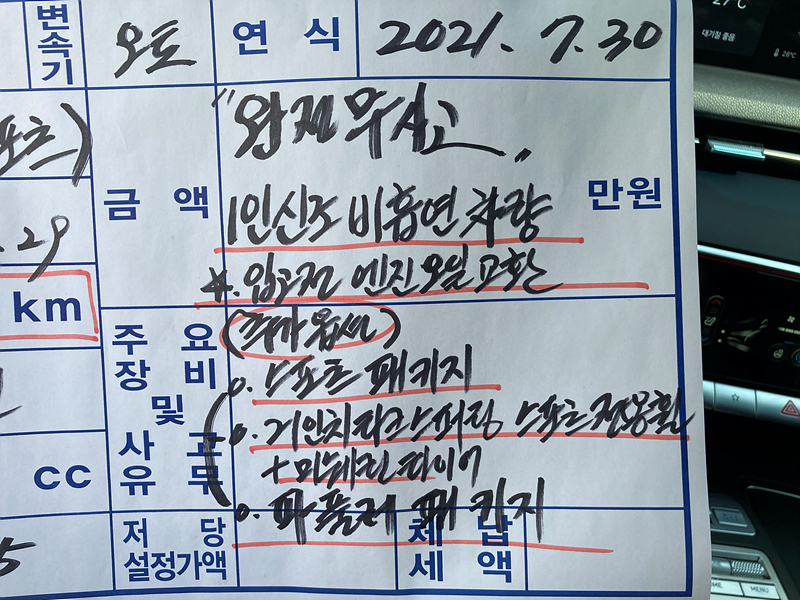 변속기 오토 연 식 2021. 7. 30
포츠)
"완전무사고"
금 액 만원
1인신조 비흡연 차량
.29
※. 입고전 엔진오일 교환
km
주 요 장 비 및 사 고 유 무
(추가옵션)
o. 스포츠 패키지
o. 21인치 다크스퍼터링 스포츠전용휠
+ 미쉐린타이어
cc
o. 파퓰러 패키지
저 당 설정가액
체 납 세 액
5
27°C
대기질 좋음
28°C
MENU